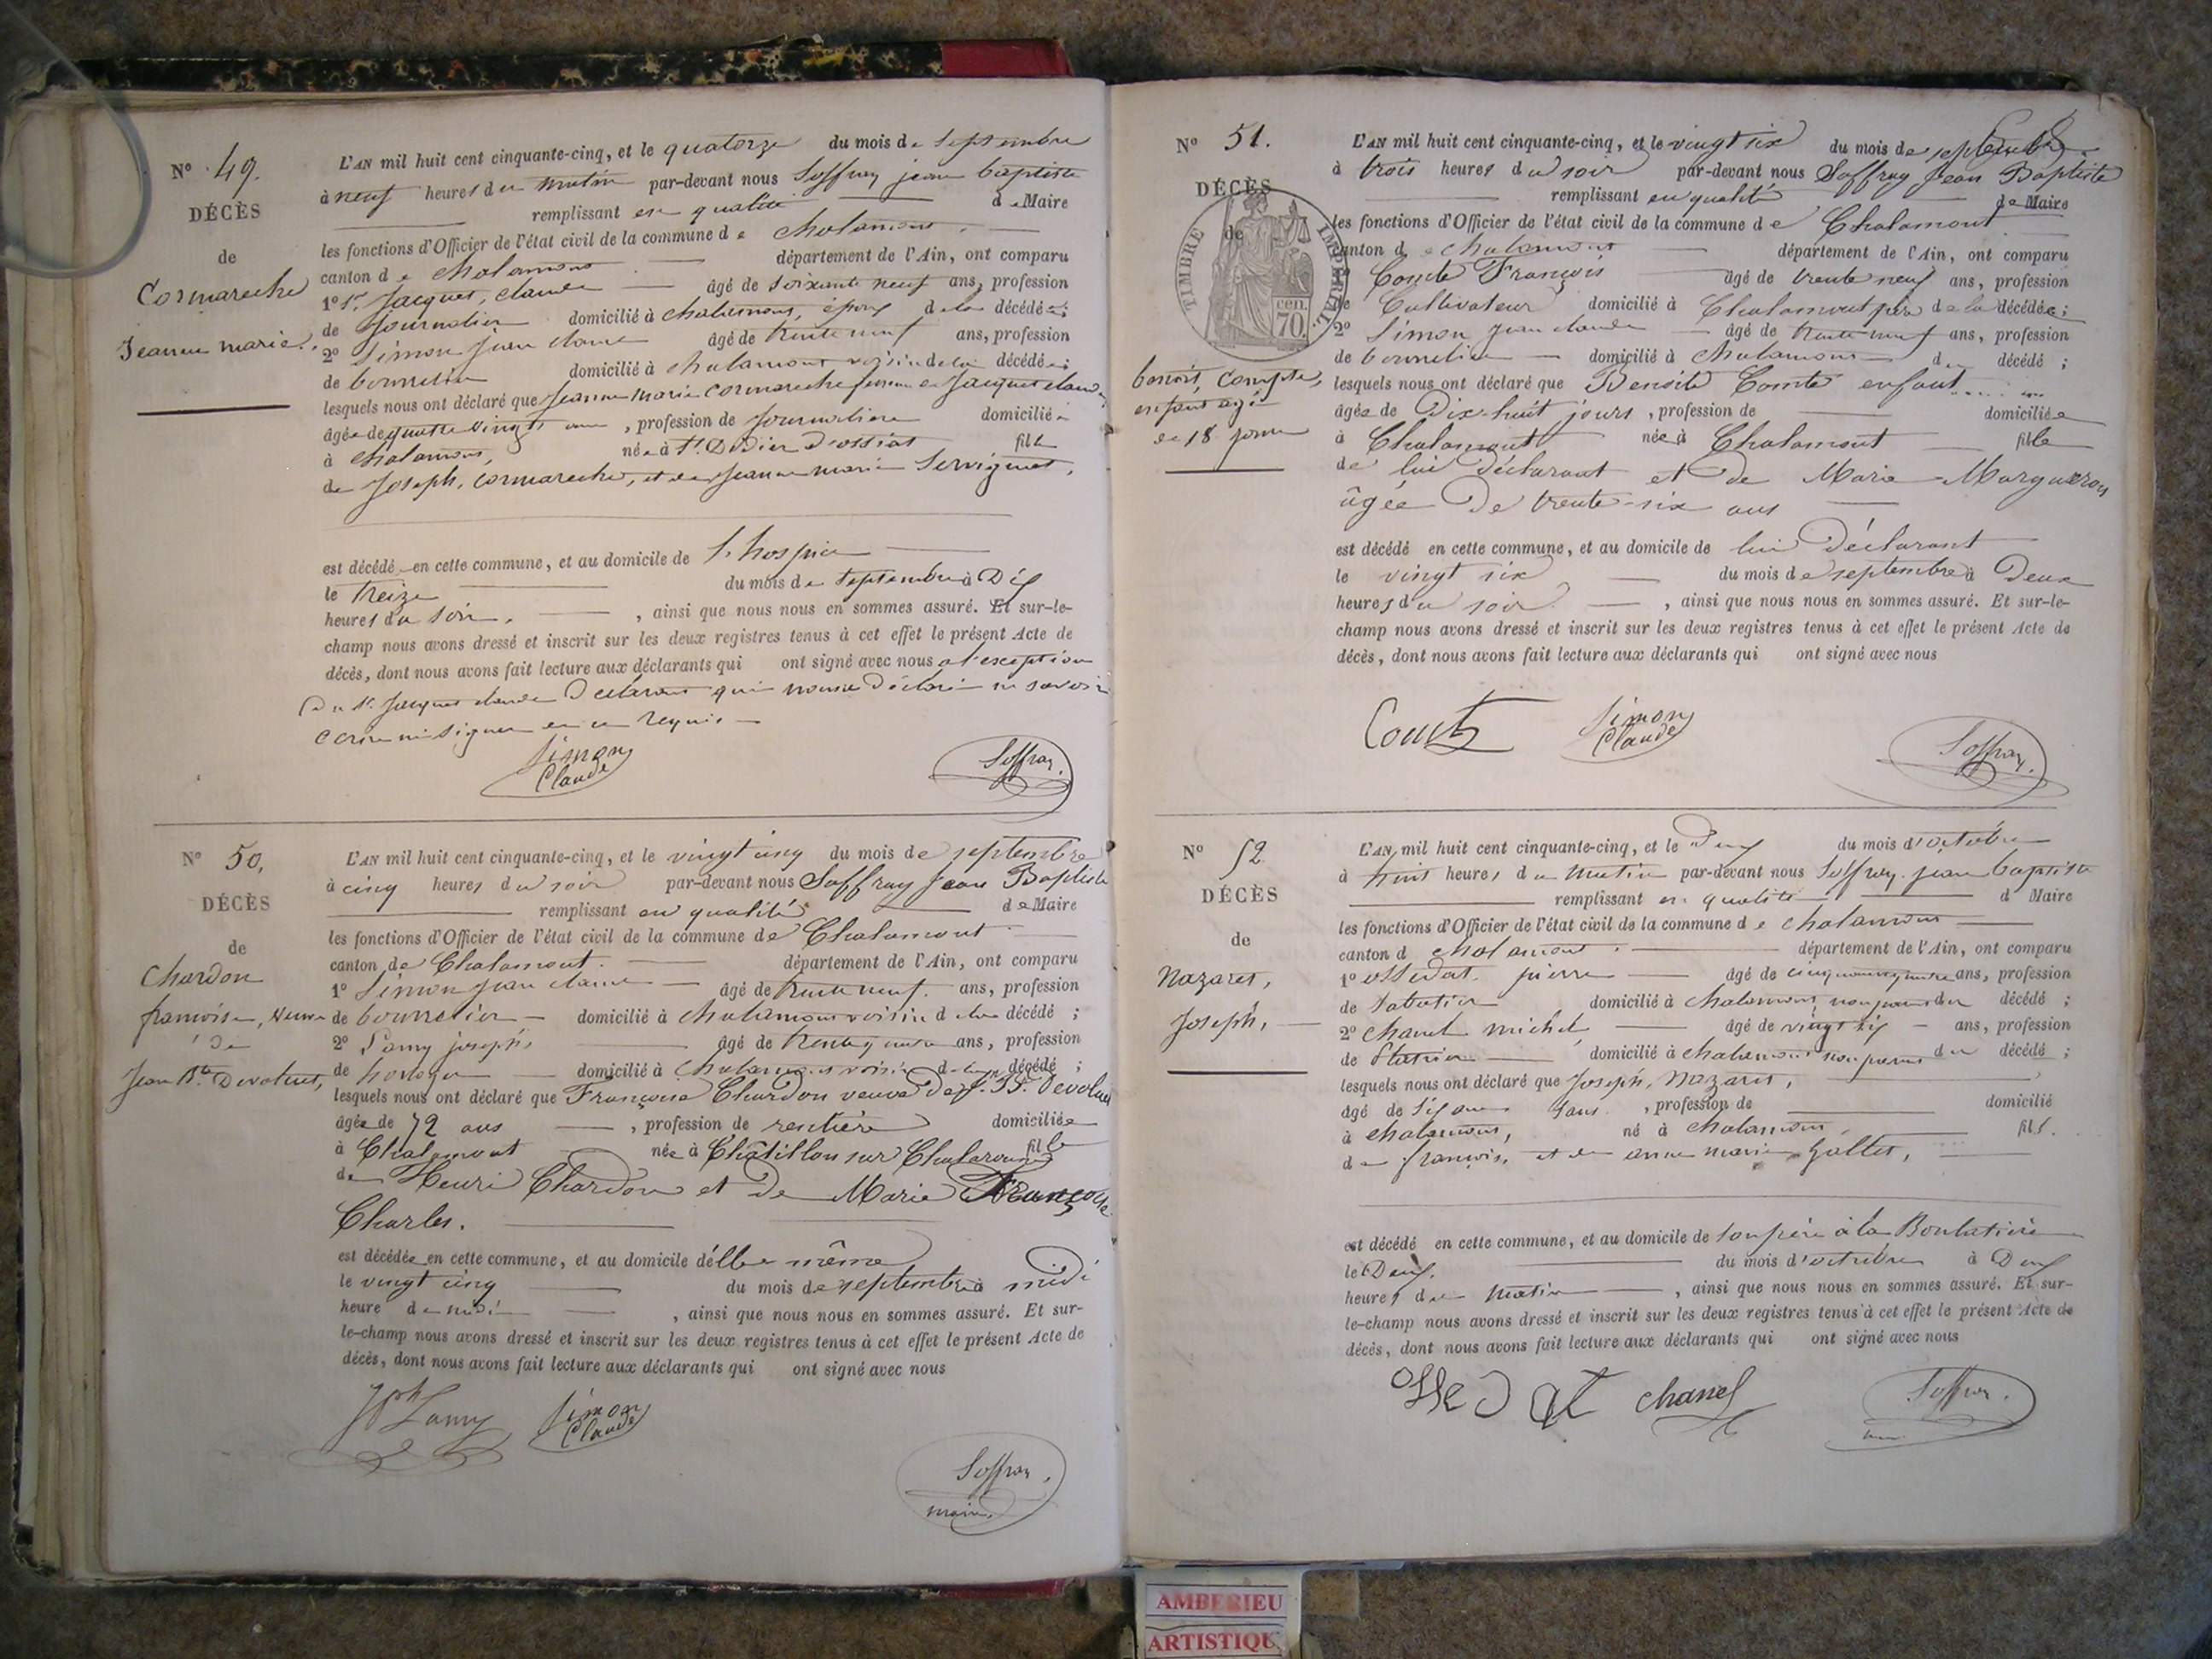 Nº 49.
DÉCÈS
de
Cormareche
Jeanne marie.
L'AN mil huit cent cinquante-cinq, et le quatorze du mois de Septembre
à neuf heures du matin par-devant nous Soffray jean baptiste
remplissant en qualité de Maire
les fonctions d'Officier de l'état civil de la commune de chalamont.
canton de chalamont département de l'Ain, ont comparu
1º Sr. Jacquet, claude âgé de soixante neuf ans, profession
de Journalier domicilié à chalamont, époux de la décédée;
2º Simon Jean claude âgé de trente neuf ans, profession
de bourrelier domicilié à chalamont voisin de la décédée;
lesquels nous ont déclaré que Jeanne Marie cormareche femme de Jacquet claude,
âgée de quatre vingt ans, profession de Journaliere domiciliée
à chalamont, née à St. Didier d'ossiat fille
de Joseph, cormareche, et de Jeanne marie Servignat,
est décédée en cette commune, et au domicile de l'hospice
le treize du mois de Septembre à Dix
heures du soir, ainsi que nous nous en sommes assuré. Et sur-le-
champ nous avons dressé et inscrit sur les deux registres tenus à cet effet le présent Acte de
décès, dont nous avons fait lecture aux déclarants qui ont signé avec nous a l'exception
du Sr. Jacquet claude Déclarant qui nous a Déclaré ne savoir
écrire ni signer de ce requis
Simon
Claude
Soffray.
Nº 50.
DÉCÈS
de
Chardon
francoise, veuve
de
Jean Bte Devoluet,
L'AN mil huit cent cinquante-cinq, et le vingt cinq du mois de septembre
à cinq heures du soir par-devant nous Soffray Jean Baptiste
remplissant en qualité de Maire
les fonctions d'Officier de l'état civil de la commune de Chalamont
canton de Chalamont. département de l'Ain, ont comparu
1º Simon Jean claude âgé de trente neuf. ans, profession
de bourrelier domicilié à chalamont voisin de la décédé;
2º Lamy joseph, âgé de trente quatre ans, profession
de domicilié à chalamont voisin de la décédé;
lesquels nous ont déclaré que Françoise Chardon veuve de J. Bt. Devoluet
âgée de 72 ans, profession de rentière domiciliée
à Chalamont née à Châtillon sur Chalaronne fille
de Henri Chardon et de Marie Françoise
Charles.
est décédée en cette commune, et au domicile d'elle même
le vingt cinq du mois de septembre à midi
heure de midi, ainsi que nous nous en sommes assuré. Et sur-
le-champ nous avons dressé et inscrit sur les deux registres tenus à cet effet le présent Acte de
décès, dont nous avons fait lecture aux déclarants qui ont signé avec nous
Jph Lamy
Simon
Claude
Soffray.
maire.
Nº 51.
DÉCÈS
de
TIMBRE IMPÉRIAL
70 cen.
benoit, Compte,
enfant agé
de 18 jours
L'AN mil huit cent cinquante-cinq, et le vingt six du mois de septembre
à trois heures du soir par-devant nous Soffray Jean Baptiste
remplissant en qualité de Maire
les fonctions d'Officier de l'état civil de la commune de Chalamont
canton de chalamont département de l'Ain, ont comparu
Comte François âgé de trente neuf ans, profession
de Cultivateur domicilié à Chalamont père de la décédée;
2º Simon Jean claude âgé de trente neuf ans, profession
de bourrelier domicilié à chalamont du décédé;
lesquels nous ont déclaré que Benoite Comte enfant
âgée de Dix-huit jours, profession de domiciliée
à Chalamont née à Chalamont fille
de lui déclarant et de Marie Margueron
âgée de trente-six ans
est décédé en cette commune, et au domicile de lui Déclarant
le vingt six du mois de septembre à Deux
heures du soir, ainsi que nous nous en sommes assuré. Et sur-le-
champ nous avons dressé et inscrit sur les deux registres tenus à cet effet le présent Acte de
décès, dont nous avons fait lecture aux déclarants qui ont signé avec nous
Comte
Simon
Claude
Soffray.
Nº 52
DÉCÈS
de
Nazaret,
Joseph,
L'AN mil huit cent cinquante-cinq, et le Deux du mois d'octobre
à huit heures du matin par-devant nous Soffray jean baptiste
remplissant en qualité d Maire
les fonctions d'Officier de l'état civil de la commune de chalamont
canton d chalamont. département de l'Ain, ont comparu
1º Ossedat. pierre âgé de ans, profession
de Sabotier domicilié à chalamont, non parent du décédé;
2º Chanel michel, âgé de vingt six ans, profession
de Platrier domicilié à chalamont non parent du décédé;
lesquels nous ont déclaré que Joseph, Nazaret,
âgé de Six ans, profession de domicilié
à chalamont, né à chalamont, fils.
de françois, et de anne marie Gallet,
est décédé en cette commune, et au domicile de son père à la Boulatière
le Deux. du mois d'octobre à Deux
heures du matin, ainsi que nous nous en sommes assuré. Et sur-
le-champ nous avons dressé et inscrit sur les deux registres tenus à cet effet le présent Acte de
décès, dont nous avons fait lecture aux déclarants qui ont signé avec nous
Ossedat chanel
Soffray.
AMBERIEU
ARTISTIQU